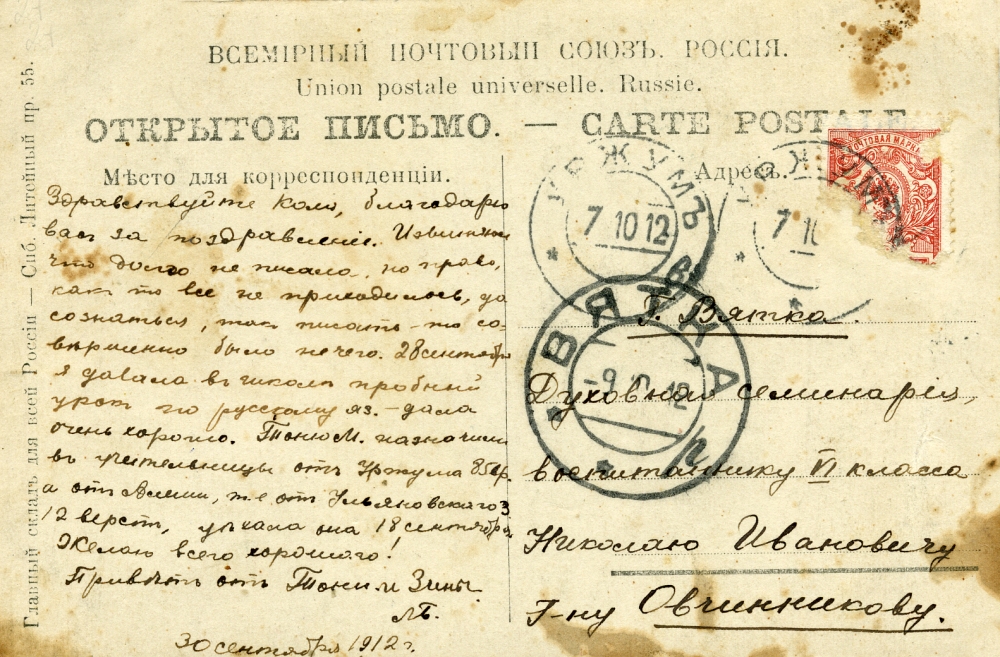 ВСЕМІРНЫЙ ПОЧТОВЫЙ СОЮЗЪ. РОССІЯ.
Union postale universelle. Russie.
ОТКРЫТОЕ ПИСЬМО. — CARTE POSTALE
Мѣсто для корреспонденціи.
Адресъ.
Здравствуйте Коля, благодарю
вас за поздравленіе. Извиняюсь
что долго не писала, но право,
как то все не приходилось, да
сознаться, так писать-то со-
вершенно было нечего. 28 сентября
я давала в школѣ пробный
урок по русскому яз. - дала
очень хорошо. Тоню М. назначили
в учительницы от Уржума 85 вер.
а от
12 верст, уѣхала она 18 сентября
Желаю всего хорошаго!
Привѣтъ отъ Тони и Зины.
30 сентября 1912 г.
Главный складъ для всей Россіи — Спб. Литейный пр. 55.
ПОЧТОВАЯ МАРКА
УРЖУМЪ ВЯТ
7 10 12
УРЖУМЪ
7 1
ВЯТКА
-9 10 12
Г. Вятка.
Духовная семинарія,
воспитаннику VI класса
Николаю Ивановичу
Г-ну Овчинникову.